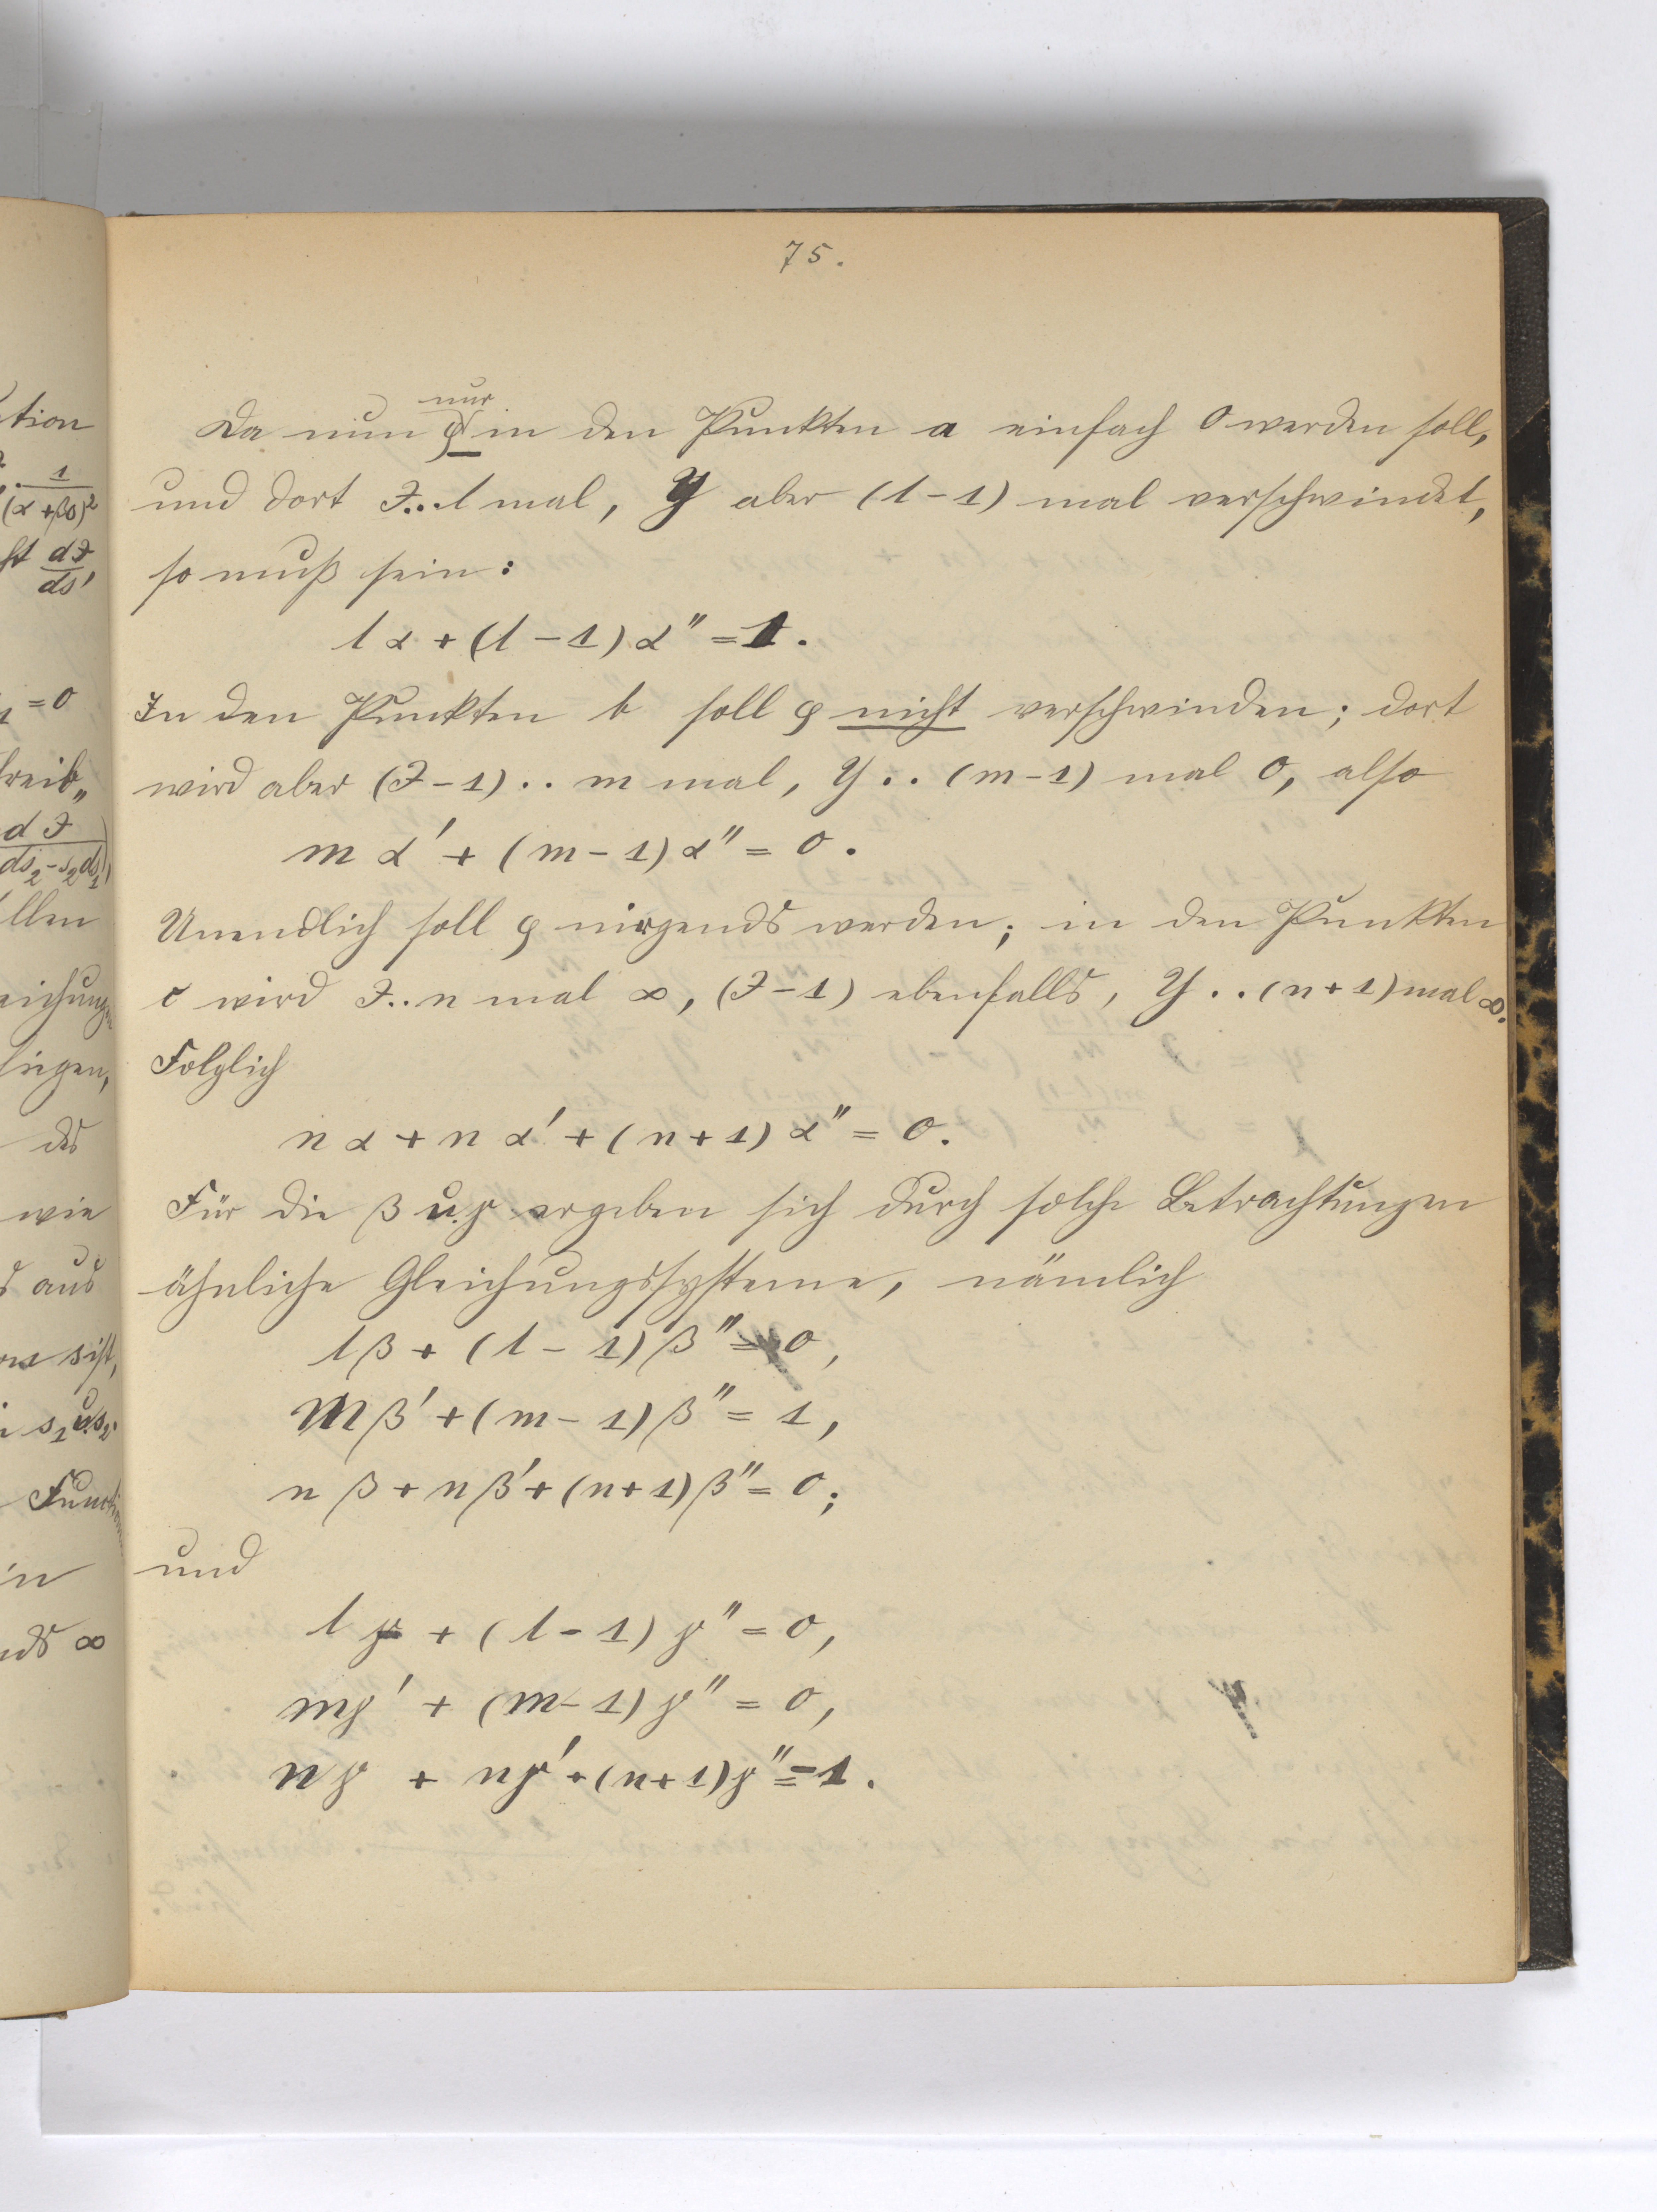 75.
Da nun φ nur in den Punkten a einfach 0 werden soll,
und dort J..l mal, Y aber (l-1) mal verschwindet,
so muß sein:
lα + (l-1)α" = 1.
In den Punkten b soll φ nicht verschwinden; dort
wird aber (J-1)..m mal, Y..(m-1) mal 0, also
mα' + (m-1)α" = 0.
Unendlich soll φ nirgends werden; in den Punkten
c wird J..n mal ∞, (J-1) ebenfalls, Y..(n+1) mal ∞.
Folglich
nα + nα' + (n+1)α" = 0.
Für die β u. γ ergeben sich durch solche Betrachtungen
ähnliche Gleichungssysteme, nämlich
lβ + (l-1)β" = 0,
mβ' + (m-1)β" = 1,
nβ + nβ' + (n+1)β" = 0;
und
lγ + (l-1)γ" = 0,
mγ' + (m-1)γ" = 0,
nγ + nγ' + (n+1)γ" = -1.